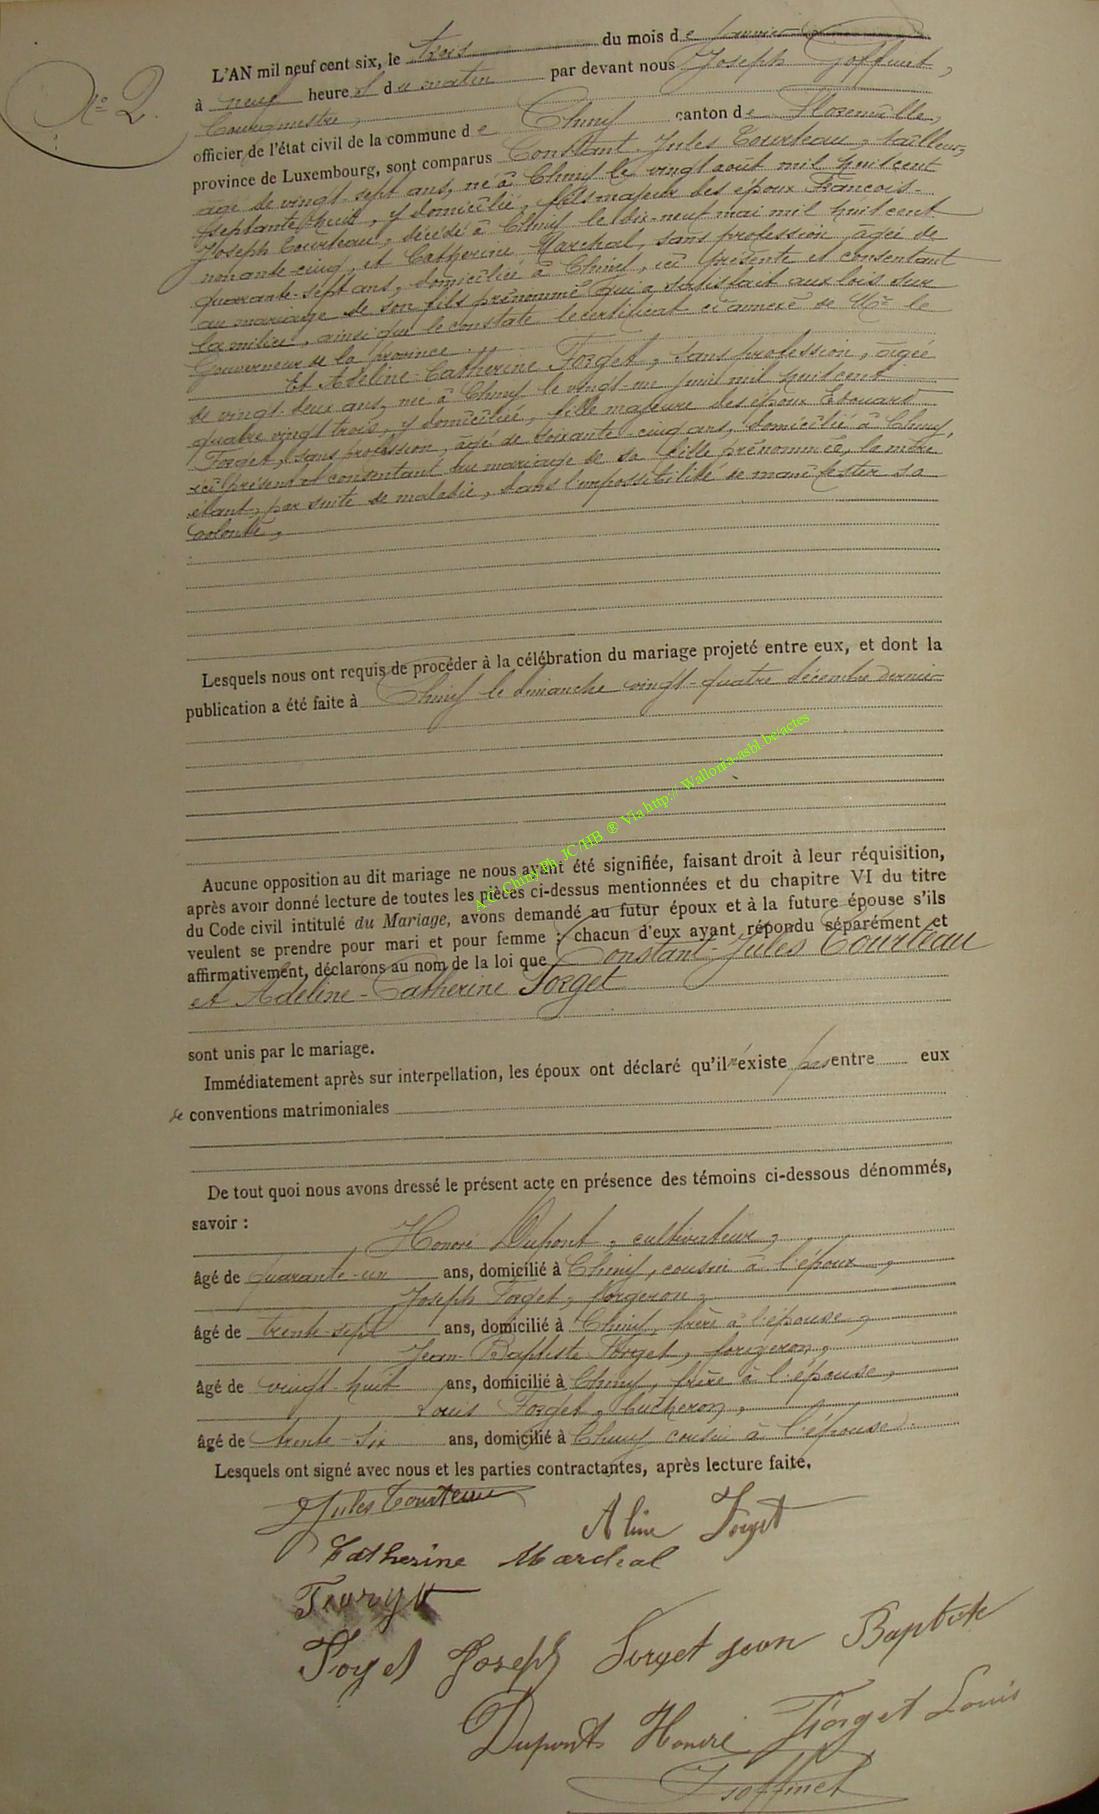 N° 2.
L'AN mil neuf cent six, le trois du mois de janvier
à neuf heures du matin par devant nous Joseph Goffinet,
Bourgmestre,
officier de l'état civil de la commune de Chiny canton de Florenville,
province de Luxembourg, sont comparus Constant-Jules Tourteau, tailleur,
âgé de vingt-sept ans, né à Chiny le vingt août mil huit cent
septante-huit, y domicilié, fils majeur des époux François-
Joseph Tourteau, décédé à Chiny le dix-neuf mai mil huit cent
nonante-cinq, et Catherine Marchal, sans profession, âgée de
quarante-sept ans, domiciliée à Chiny, ici présente et consentant
au mariage de son fils prénommé qui a satisfait aux lois sur
la milice, ainsi que le constate le certificat ci-annexé de Mr le
Gouverneur de la province.
Et Adeline-Catherine Forget, sans profession, âgée
de vingt-deux ans, née à Chiny le vingt-un juin mil huit cent
quatre vingt trois, y domiciliée, fille majeure des époux Edouard
Forget, sans profession, âgé de soixante-cinq ans, domicilié à Chiny,
ici présent et consentant au mariage de sa fille prénommée, la mère
étant, par suite de maladie, dans l'impossibilité de manifester sa
volonté,
Lesquels nous ont requis de procéder à la célébration du mariage projeté entre eux, et dont la
publication a été faite à Chiny le dimanche vingt-quatre décembre dernier
A.C. Chiny Ph. JC/HB ® Via http:// Wallonia-asbl.be/actes
Aucune opposition au dit mariage ne nous ayant été signifiée, faisant droit à leur réquisition,
après avoir donné lecture de toutes les pièces ci-dessus mentionnées et du chapitre VI du titre
du Code civil intitulé du Mariage, avons demandé au futur époux et à la future épouse s'ils
veulent se prendre pour mari et pour femme ; chacun d'eux ayant répondu séparément et
affirmativement, déclarons au nom de la loi que Constant-Jules Tourteau
et Adeline-Catherine Forget
sont unis par le mariage.
Immédiatement après sur interpellation, les époux ont déclaré qu'il n'existe pas entre eux
de conventions matrimoniales
De tout quoi nous avons dressé le présent acte en présence des témoins ci-dessous dénommés,
savoir :
Honoré Dupont, cultivateur,
âgé de quarante-un ans, domicilié à Chiny, cousin à l'époux,
Joseph Forget, forgeron,
âgé de trente-sept ans, domicilié à Chiny, frère à l'épouse,
Jean-Baptiste Forget, forgeron,
âgé de vingt-huit ans, domicilié à Chiny, frère à l'épouse,
Louis Forget, bûcheron,
âgé de trente-six ans, domicilié à Chiny cousin à l'épouse.
Lesquels ont signé avec nous et les parties contractantes, après lecture faite.
Jules Tourteau
Aline Forget
Catherine Marchal
Forget
Forget Joseph Forget jean Baptiste
Dupont Honoré Forget Louis
J Goffinet